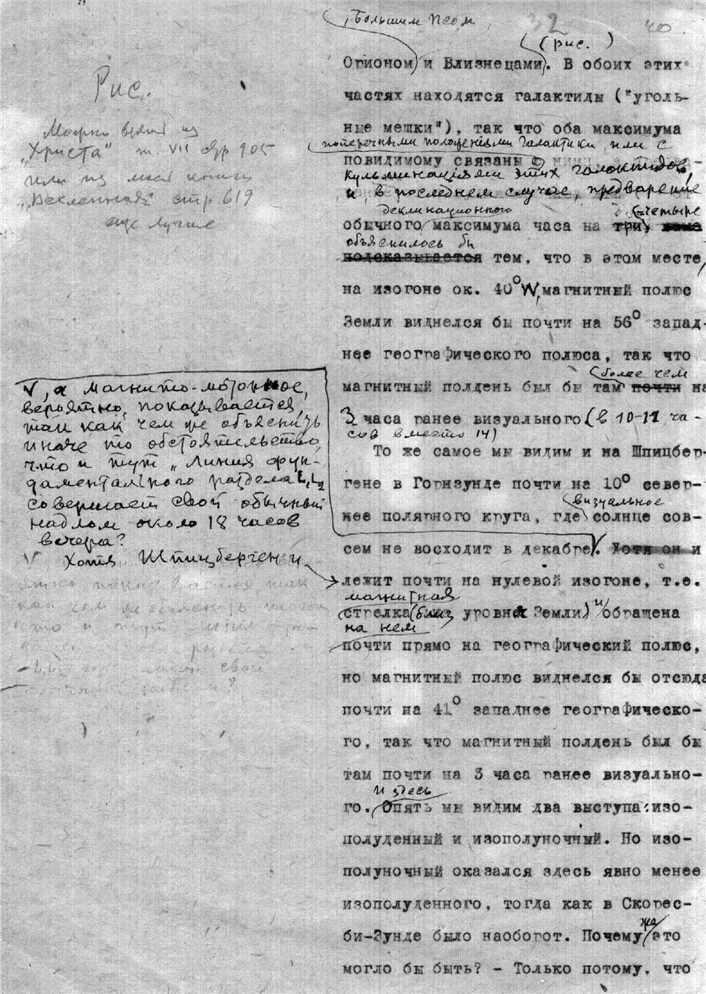 , Большим Псом,
32
40
(рис. )
Орионом и Близнецами. В обоих этих
частях находятся галактиды ("уголь-
ные мешки"), так что оба максимума
поперечными положениями Галактики, или с
повидимому связаны с ними
кульминациями этих галактидов,
и в последнем случае, предварение
деклинационного
четыре
обычного максимума часа на три
объяснилось бы
подсказывается тем, что в этом месте,
на изогоне ок. 40° W, магнитный полюс
Земли виднелся бы почти на 56° запад-
нее географического полюса, так что
более чем
магнитный полдень был бы там почти на
3 часа ранее визуального (в 10-11 ча-
сов вместо 14)
То же самое мы видим и на Шпицбер-
гене в Горнзунде почти на 10° север-
визуальное
нее полярного круга, где солнце сов-
сем не восходит в декабре. Хотя он и
лежит почти на нулевой изогоне, т.е.
магнитная
стрелка (близ уровня Земли) и обращена
на нем
почти прямо на географический полюс,
но магнитный полюс виднелся бы отсюда
почти на 41° западнее географическо-
го, так что магнитный полдень был бы
там почти на 3 часа ранее визуально-
И здесь
го. Опять мы видим два выступа: изо-
полуденный и изополуночный. Но изо-
полуночный оказался здесь явно менее
изополуденного, тогда как в Скорес-
же
би-Зунде было наоборот. Почему это
могло бы быть? - Только потому, что
Рис.
Можно взять из
"Христа" т VII стр 905
или из моей книги
"Вселенная" стр 619
еще лучше
V, а магнито-моторное,
вероятно, показывается,
так как чем же объяснить
иначе то обстоятельство,
что и тут "Линия фун-
даментального раздела
совершает свой обычный
надлом около 18 часов
вечера?
V Хотя Шпицберген и